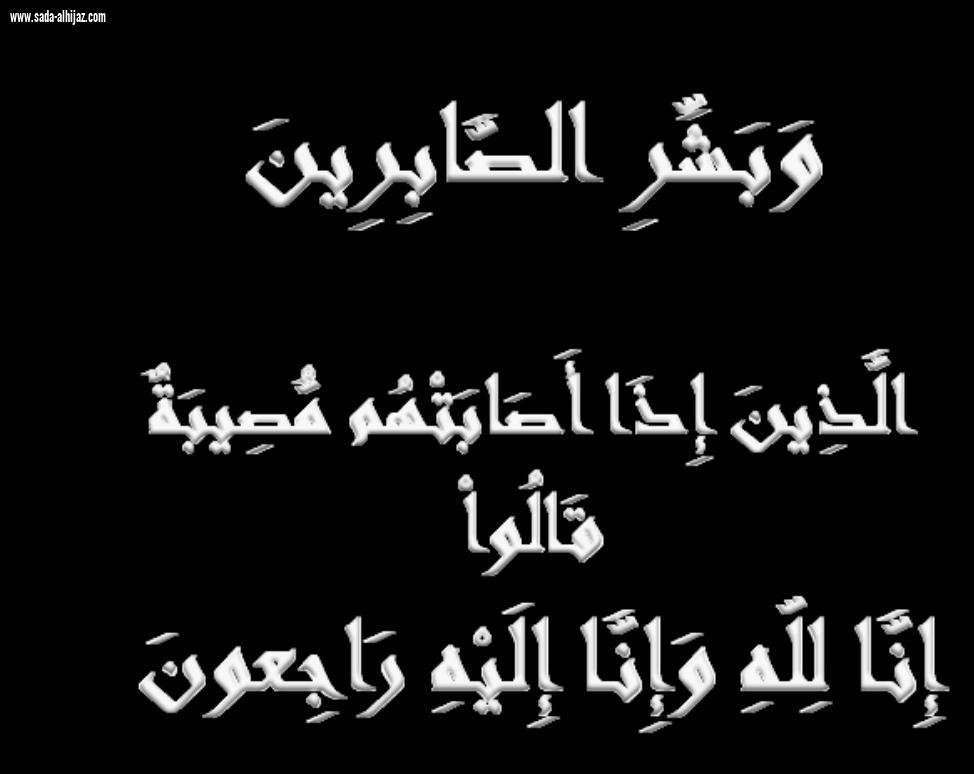 www.sada-alhijaz.com
وَبَشِّرِ الصَّابِرِينَ
الَّذِينَ إِذَا أَصَابَتْهُم مُّصِيبَةٌ
قَالُواْ
إِنَّا لِلّهِ وَإِنَّا إِلَيْهِ رَاجِعونَ